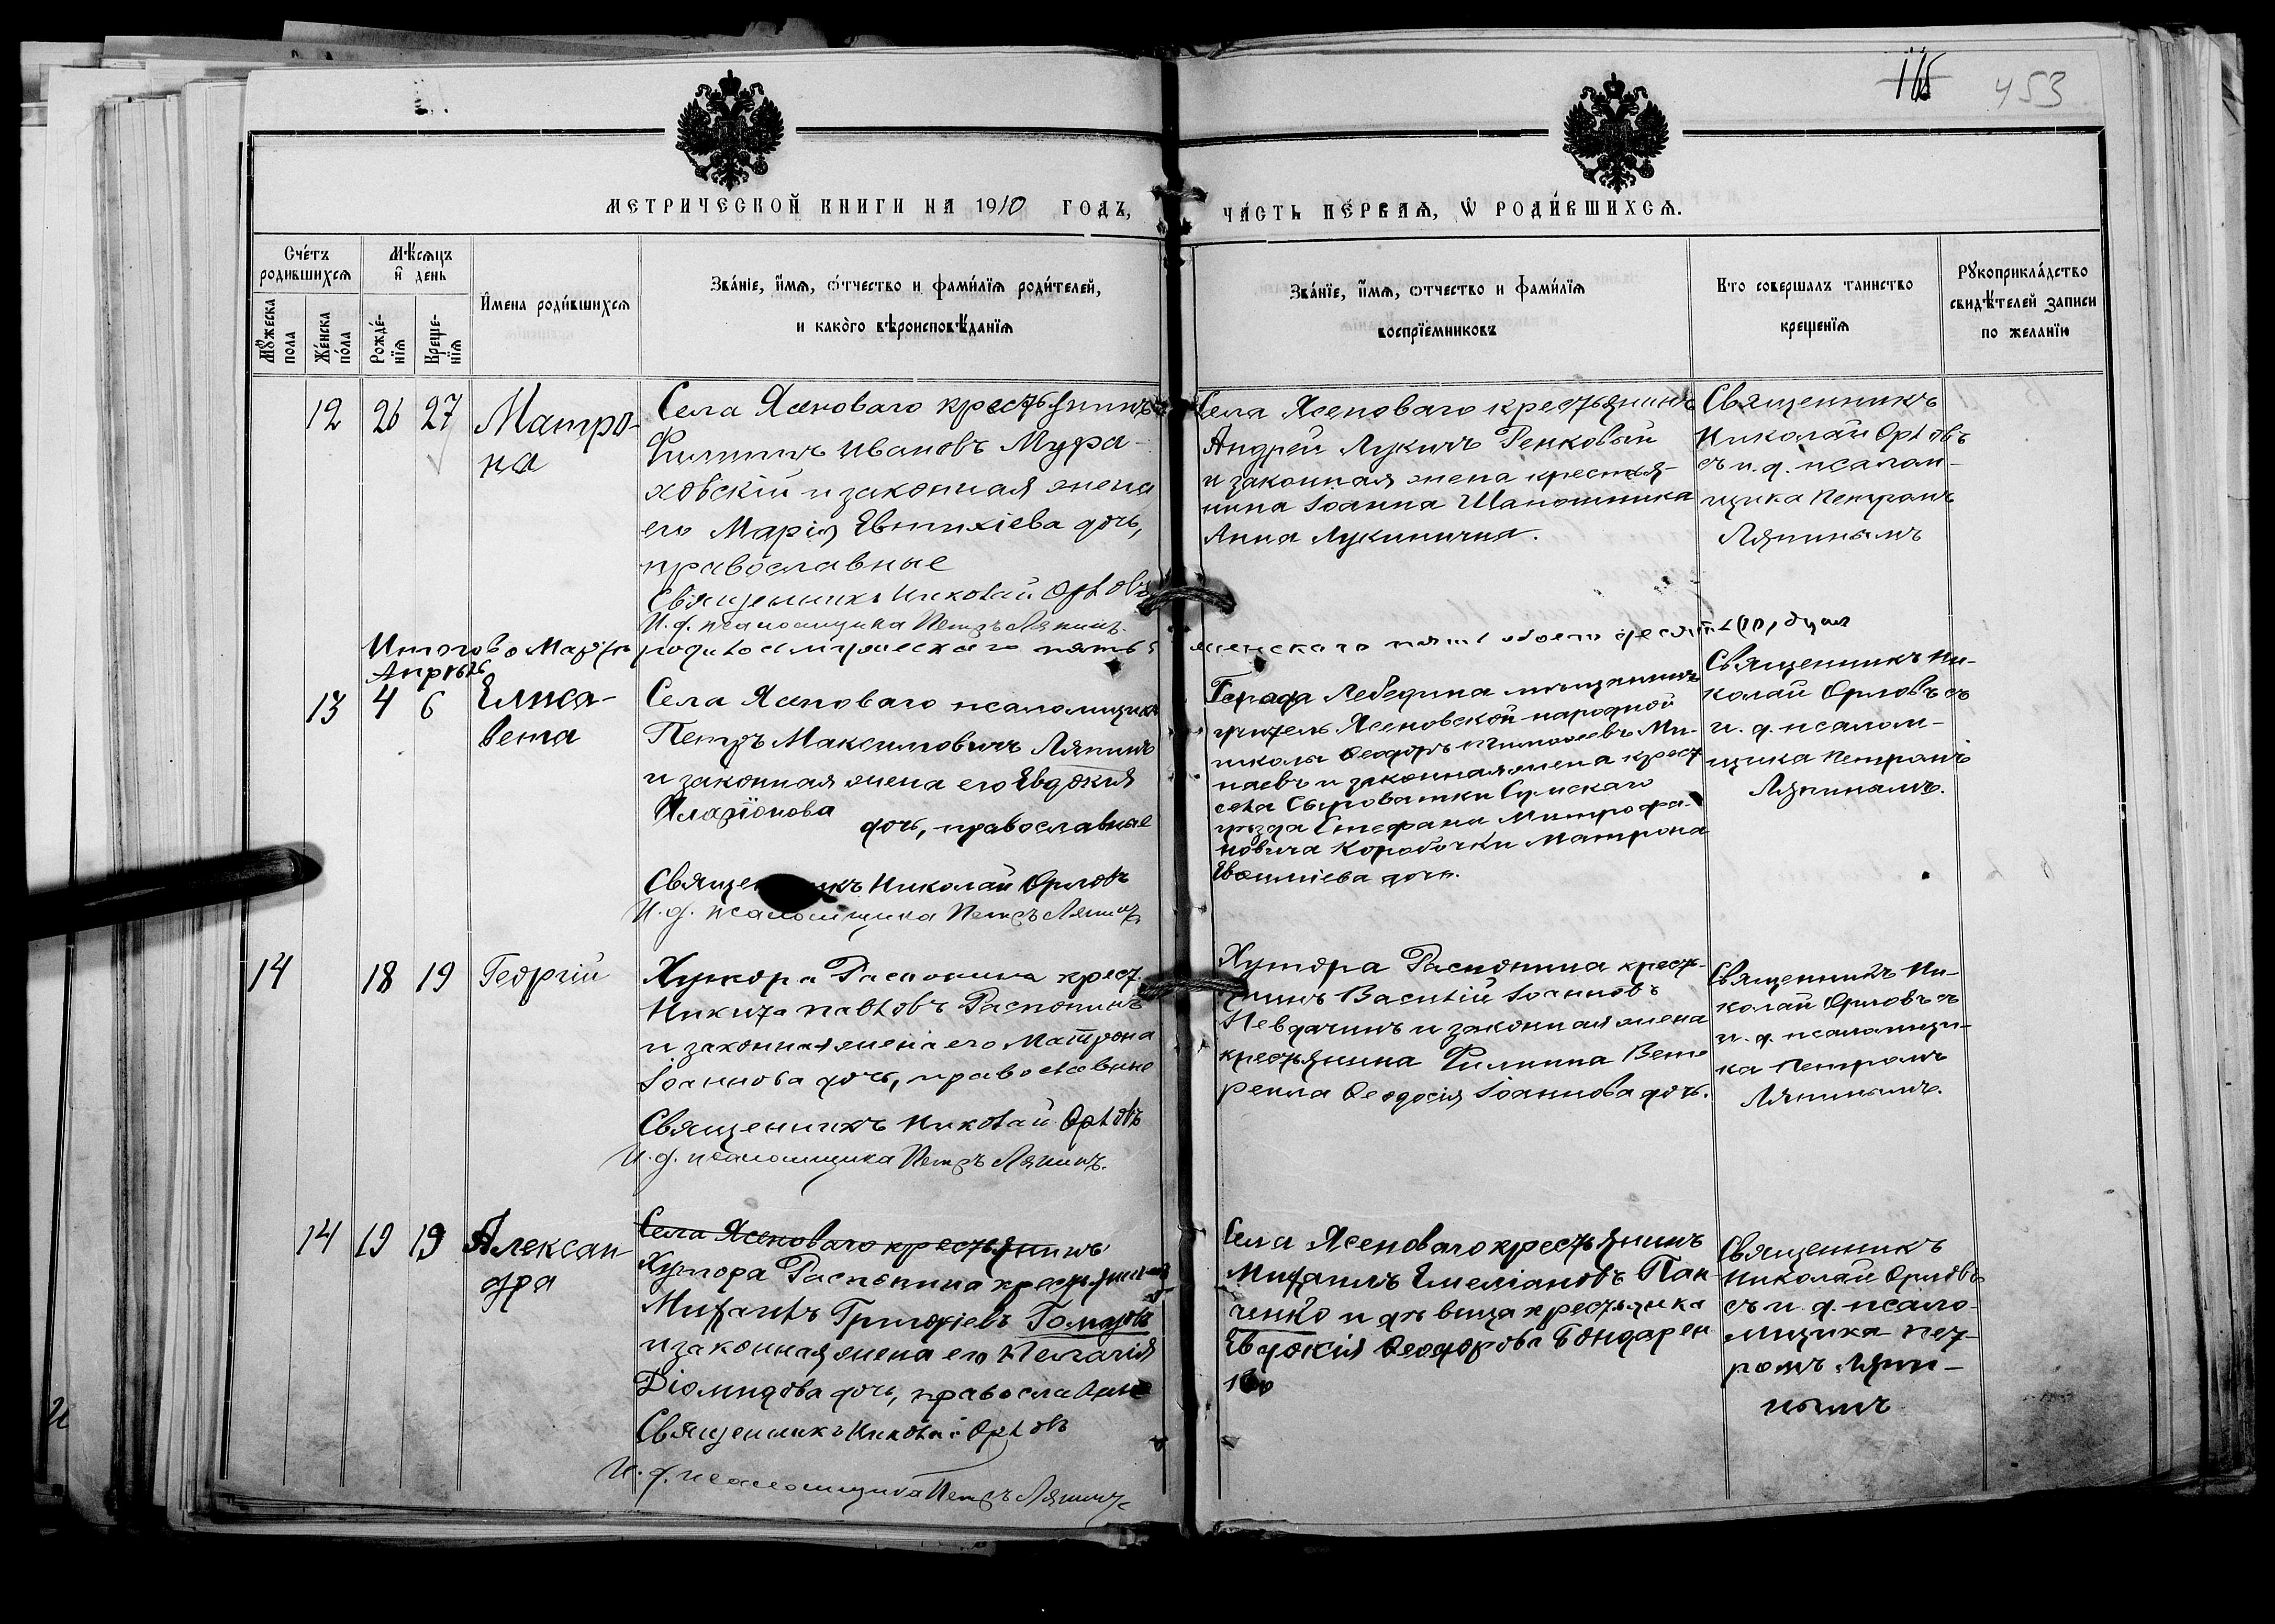 115 453
МЕТРИЧЕСКОЙ КНИГИ НА 1910 ГОДЪ,
ЧА́СТЬ ПЕ́РВАѦ, Ѡ РОДИ́ВШИХСѦ.
Сче́тъ родившихсѧ
Мꙋ́жеска пола
Же́нска по́ла
Мѣ́сѧцъ и҆ день
Рожде́нїѧ
Креще́нїѧ
И҆мена роди́вшихсѧ
Зва́нїе, и҆́мѧ, ѻ҆́тчество и фами́лїѧ роди́телей,
и како́гѡ вѣроисповѣ́данїѧ
Зва́нїе, и҆́мѧ, ѻтчество и фами́лїѧ
воспрїе́мниковъ
Кто совершалъ таинство
креще́нїѧ
Рꙋкоприкла́дство
свидѣ́телей записи
по жела́нїю
12 26 27 Матро-
на
Села Ясеноваго крестьянинъ
Филиппъ Ивановъ Мура-
ховскій и законная жена
его Марія Евтихіева дочь,
православные
Священникъ Николай Орловъ
И. д. псаломщика Петръ Ляпинъ.
Села Ясеноваго крестьянинъ
Андрей Лукичъ Генковый
и законная жена крестья-
нина Іоанна Шапошника
Анна Лукинична.
Священникъ
Николай Орловъ
съ и. д. псалом-
щика Петромъ
Ляпинымъ
Итого въ Мартѣ родилось мужескаго пять
женскаго пять обоего десять (10) душъ
Апрѣль
13 4 6 Елиса-
вета
Села Ясеноваго псаломщикъ
Петръ Максимовичъ Ляпинъ
и законная жена его Евдокія
Иларіонова
дочь, православные
Священникъ Николай Орловъ
И. д. псаломщика Петръ Ляпинъ
Города Лебедина мѣщанинъ
учитель Ясеновской народной
школы Ѳеодоръ Тимоѳеевъ Ми-
наевъ и законная жена крест
села Сыроватки Сумскаго
уѣзда Стефана Митрофа-
новича Коробочки Матрона
Евѳиміева дочь.
Священникъ Ни-
колай Орловъ съ
и. д. псалом-
щика Петромъ
Ляпинымъ.
14 18 19 Георгій
Хутора Распопина крест.
Никита Павловъ Распопинъ
и законная жена его Матрона
Іоаннова дочь, православные
Священникъ Николай Орловъ
И. д. псаломщика Петръ Ляпинъ.
Хутора Распопина кресть-
янинъ Василій Іоанновъ
Невдачинъ и законная жена
крестьянина Филиппа Вете
Ѳеодосія Іоаннова дочь.
Священникъ Ни-
колай Орловъ съ
и. д. псаломщи-
ка Петромъ
Ляпинымъ.
14 19 19 Алексан-
дра
Села Ясеноваго крестьянинъ
Хутора Распопина крестьянинъ
Михаилъ Григоріевъ Гомазовъ
и законная жена его Пелагія
Діомидова дочь, православные
Священникъ Николай Орловъ
И. д. псаломщика Петръ Ляпинъ
Села Ясеноваго крестьянинъ
Михаилъ Емеліановъ Пан-
ченко и дѣвица крестьянка
Евдокія Ѳеодорова Бондарен
ко
Священникъ
Николай Орловъ
съ и. д. псало-
мщика Пет-
ромъ Ляпи-
нымъ